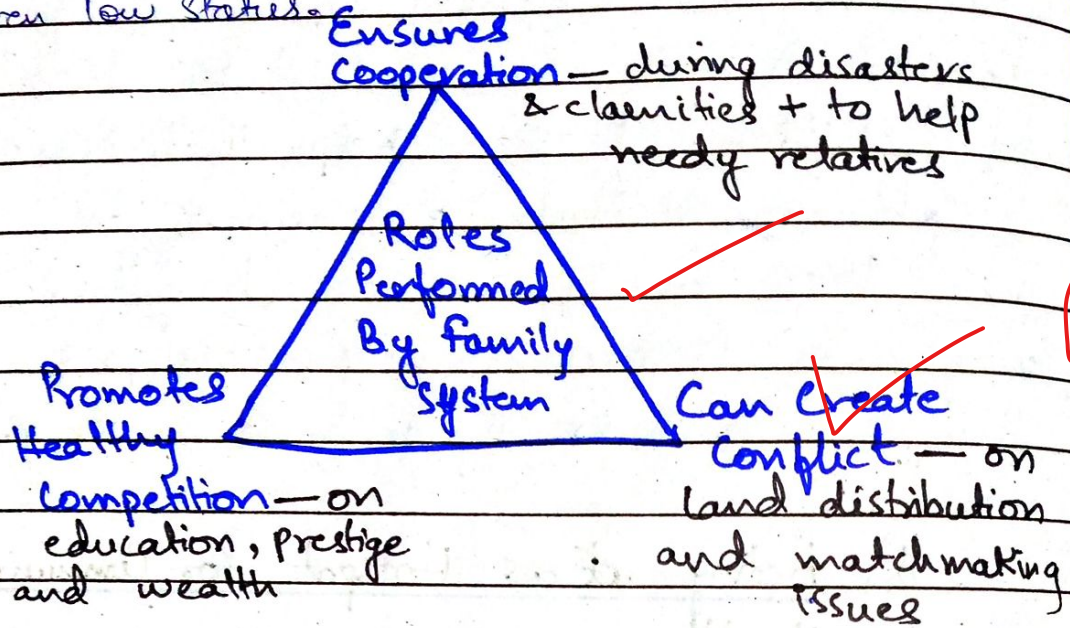 en low status.
Ensures
Cooperation — during disasters
& claemities + to help
needy relatives
Roles
Performed
By family
system
Promotes
Healthy
Competition — on
education, prestige
and wealth
Can Create
Conflict — on
land distribution
and matchmaking
issues